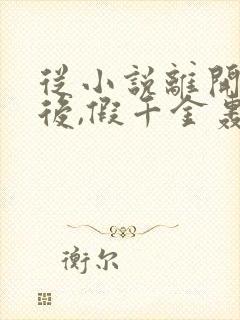 從小說離開
後,假千金轟
衡尔